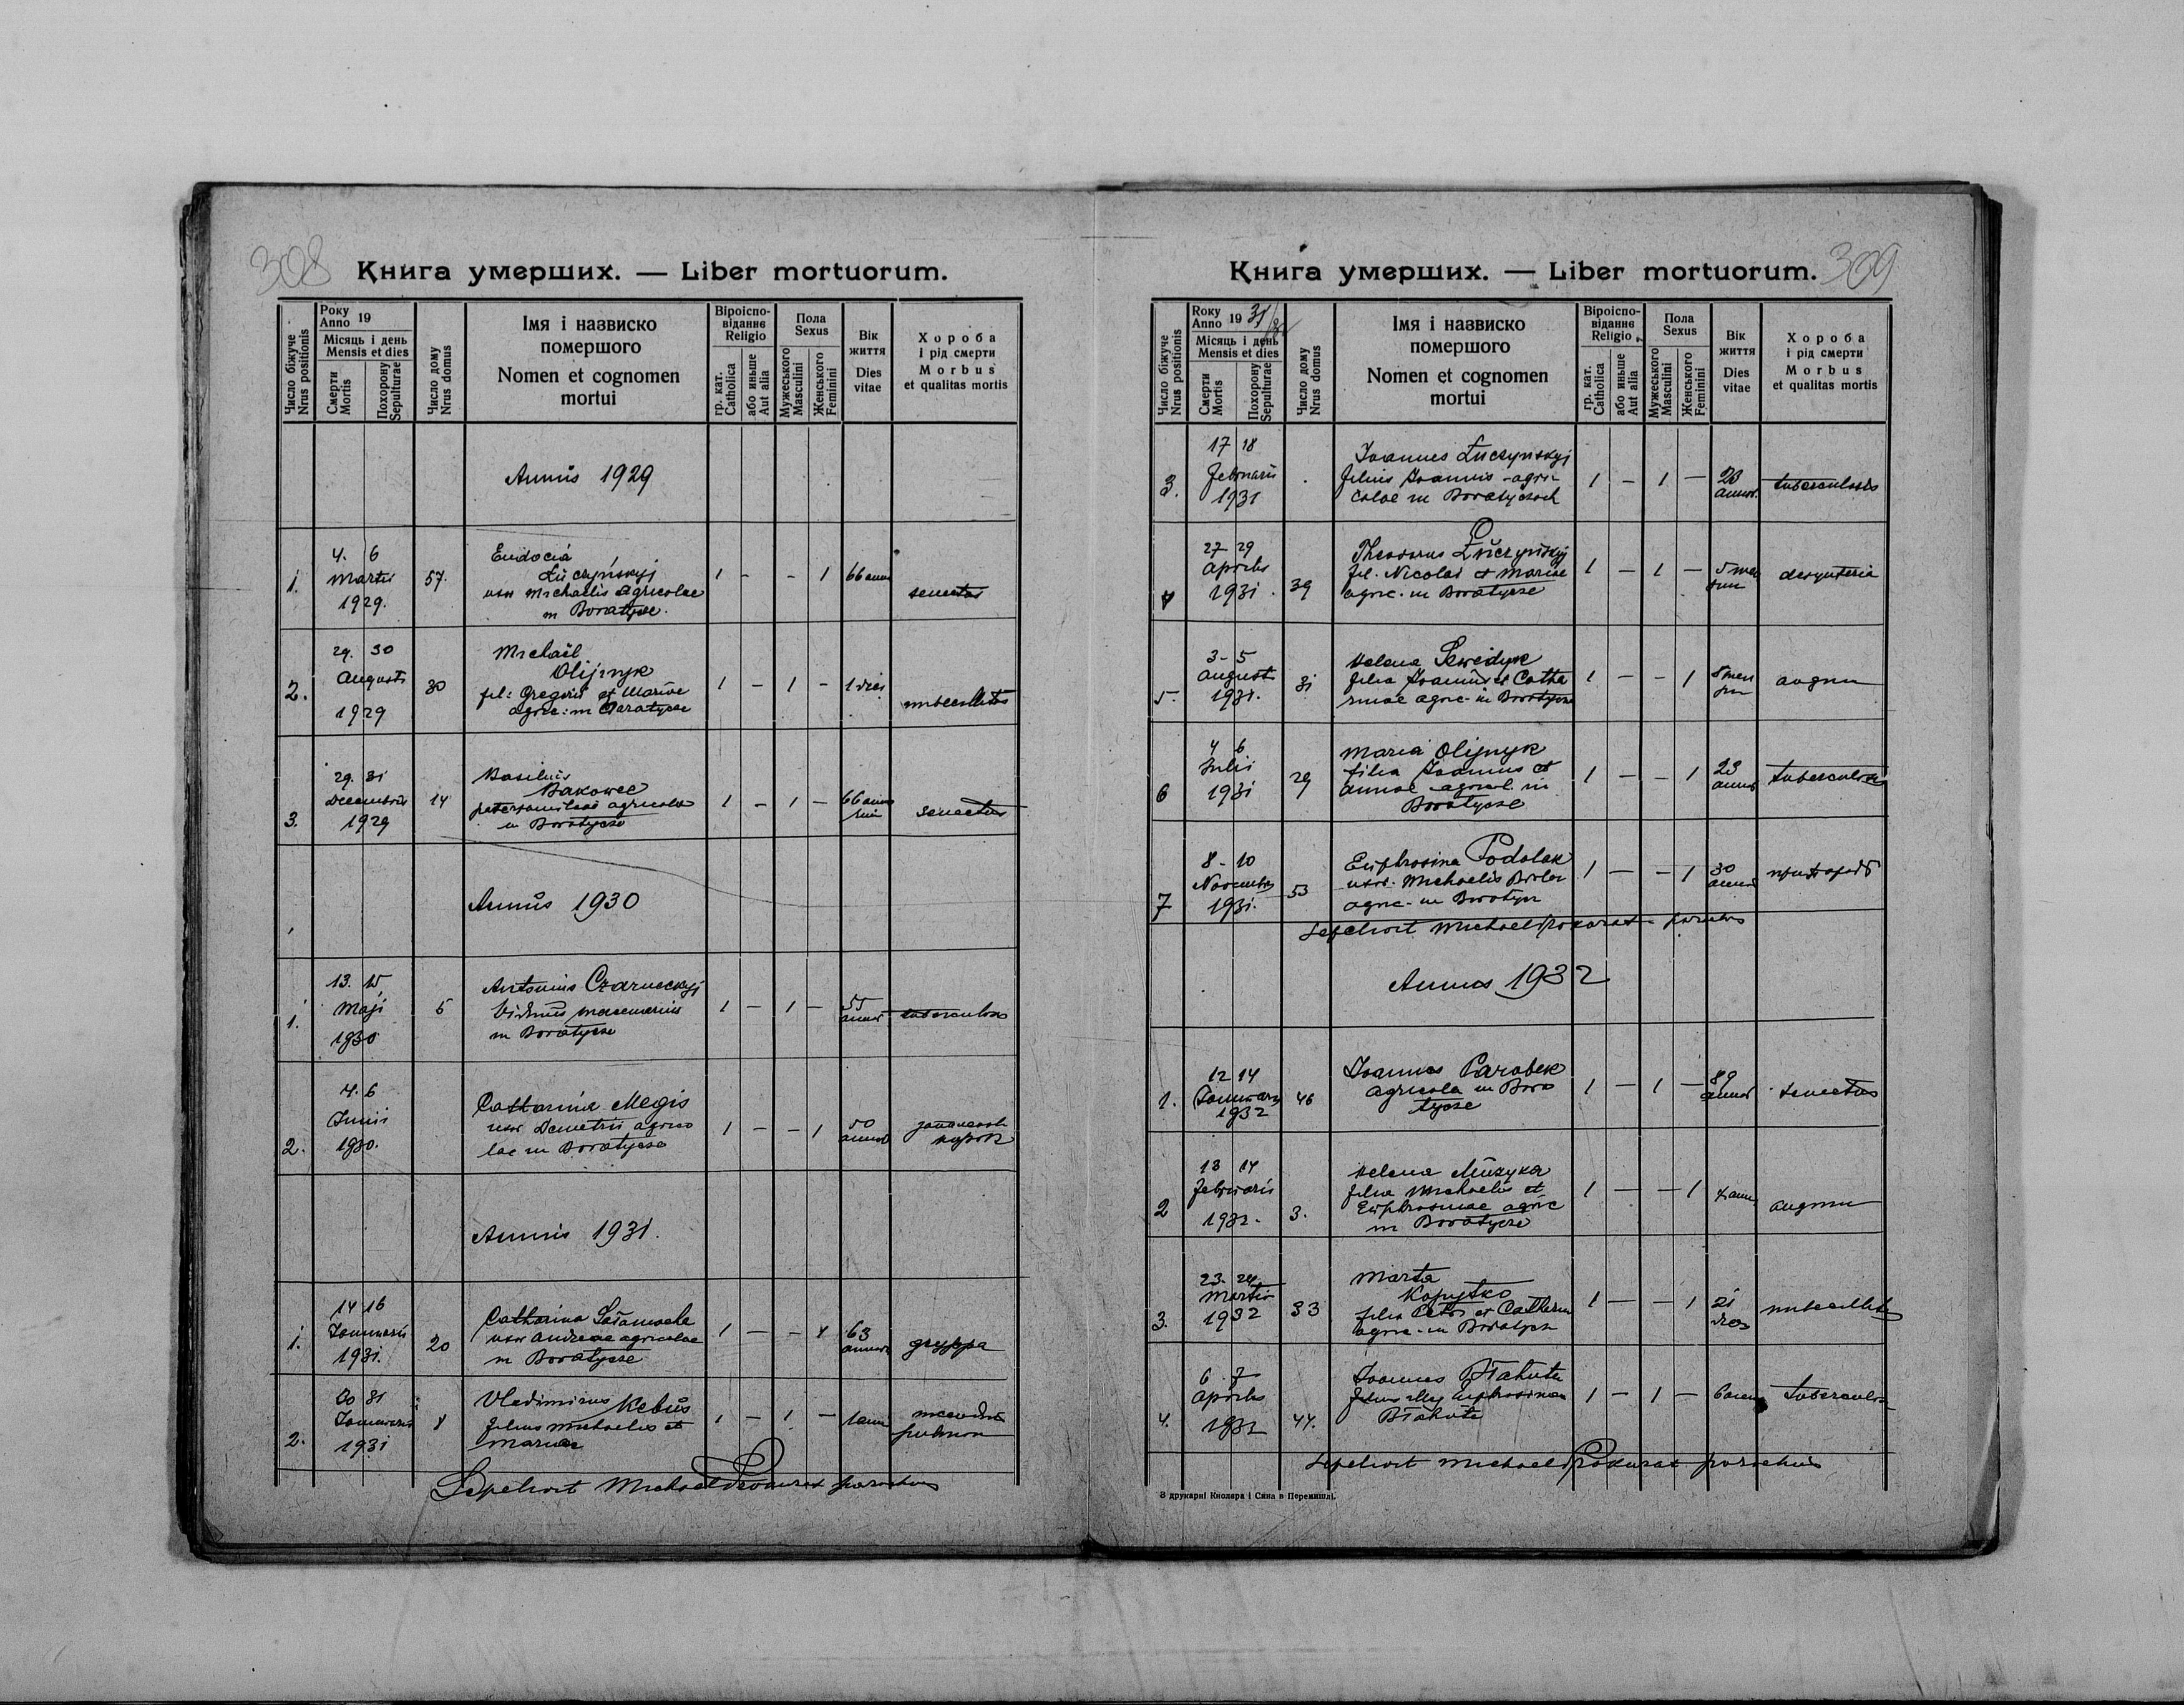 308
Книга умерших. — Liber mortuorum.
Число біжуче
Nrus positionis
Року
Anno 19
Місяць і день
Mensis et dies
Смерти
Mortis
Похорону
Sepulturae
Число дому
Nrus domus
Імя і назвиско
помершого
Nomen et cognomen
mortui
Віроіспо-
віданнє
Religio
гр. кат.
Catholica
або иньше
Aut alia
Пола
Sexus
Мужеського
Masculini
Женського
Feminini
Вік
життя
Dies
vitae
Хороба
і рід смерти
Morbus
et qualitas mortis
Annus 1929
1.
4. 6
Martii
1929.
57.
Eudocia
Łuczyńskyj
uxor Michaelis agricolae
in Boratycze.
1 - - 1
66 anno
senectus
2.
29. 30
Augusti
1929
30
Michaël
Olijnyk
fil: Gregorii et Mariae
agric: in Boratycze
1 - 1 -
1 dies
imbecillitas
3.
29. 31
Decembris
1929
14
Basilius
Bakowec
agricola
in Boratycze
1 - 1 -
66 anno
senectus
Annus 1930
1.
13. 15
Maji
1930
5
Antonius Czarneckyj
in Boratycze
1 - 1 -
55
annor
tuberculosis
2.
4. 6
Junii
1930.
Catharina Megis
uxor Demetrii agrico
lae in Boratycze
1 - - 1
50
annor
Annus 1931.
1.
14 16
Januarii
1931.
20
Catharina
uxor Andreae agricolae
in Boratycze
1 - - 1
63
annor
gryppa
2.
30 31
Januarii
1931
8
Vladimirus Kebus
filius Michaelis et
Mariae
1 - 1 -
1 ann
pulmon
Sepelivit Michael Prokurat parochus
309
Книга умерших. — Liber mortuorum.
Число біжуче
Nrus positionis
Року
Anno 19 31/32
Місяць і день
Mensis et dies
Смерти
Mortis
Похорону
Sepulturae
Число дому
Nrus domus
Імя і назвиско
помершого
Nomen et cognomen
mortui
Віроіспо-
віданнє
Religio
гр. кат.
Catholica
або иньше
Aut alia
Пола
Sexus
Мужеського
Masculini
Женського
Feminini
Вік
життя
Dies
vitae
Хороба
і рід смерти
Morbus
et qualitas mortis
3.
17 18
Februarii
1931
Joannes Łuczynskyj
filius Joannis agri-
colae in Boratyczach
1 - 1 -
23
annor.
tuberculosis
4
27 29
Aprilis
1931.
39
Theodorus Łuczyńskyj
fil. Nicolai et Mariae
agric. in Boratycze
1 - 1 -
5 men
sium
desynteria
5.
3 - 5
Augusti
1931.
31
Helena
filia Joannis et Catha
rinae agric. in Boratycze
1 - - 1
5 men
sium
angina
6
4 6
Julii
1931
29
Maria Olijnyk
filia Joannis et
Annae agricol. in
Boratycze
1 - - 1
23
annor
tuberculosis
7
8 - 10
Novembris
1931.
53
Euphrosina Podolak
uxor. Michaelis
agric. in Boratycz
1 - - 1
30
annor
Sepelivit Michael Prokurat parochus
Annus 1932
1.
12 14
Januarii
1932
46
Joannes Parobek
agricola in Bora
tycze
1 - 1 -
89
annor
senectus
2
13 14
Februarii
1932.
3.
Helena Muzyka
filia Michaelis et
Euphrosinae agric
in Boratycze
1 - - 1
angina
3.
23. 24.
Martii
1932
33
Marta
Kopystko
filia Petri et Catharin
agric. in Boratycz
1 - - 1
21
dies
imbecillitas
4.
6. 7
Aprilis
1932
44.
Joannes
filius illeg Euphrosinae
1 - 1 -
6 annor
tuberculosis
Sepelivit Michael Prokurat parochus
З друкарні Кноллера і Сина в Перемишлі.